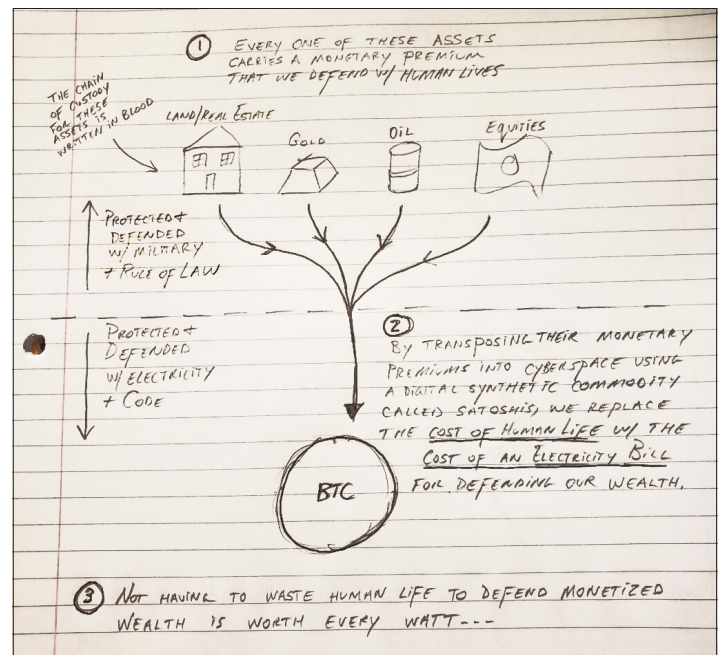 ① EVERY ONE OF THESE ASSETS
CARRIES A MONETARY PREMIUM
THAT WE DEFEND W/ HUMAN LIVES
THE CHAIN
OF CUSTODY
FOR THESE
ASSETS IS
WRITTEN IN BLOOD
LAND/REAL ESTATE
GOLD
OIL
EQUITIES
PROTECTED +
DEFENDED
W/ MILITARY
+ RULE OF LAW
PROTECTED +
DEFENDED
W/ ELECTRICITY
+ CODE
②
BY TRANSPOSING THEIR MONETARY
PREMIUMS INTO CYBERSPACE USING
A DIGITAL SYNTHETIC COMMODITY
CALLED SATOSHIS, WE REPLACE
THE COST OF HUMAN LIFE W/ THE
COST OF AN ELECTRICITY BILL
FOR DEFENDING OUR WEALTH.
BTC
③ NOT HAVING TO WASTE HUMAN LIFE TO DEFEND MONETIZED
WEALTH IS WORTH EVERY WATT---